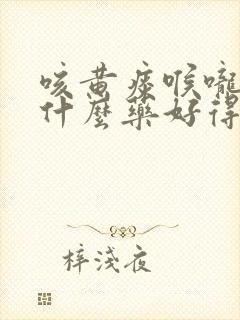 咳黄痰喉嚨
什麼藥好得
梓淺夜